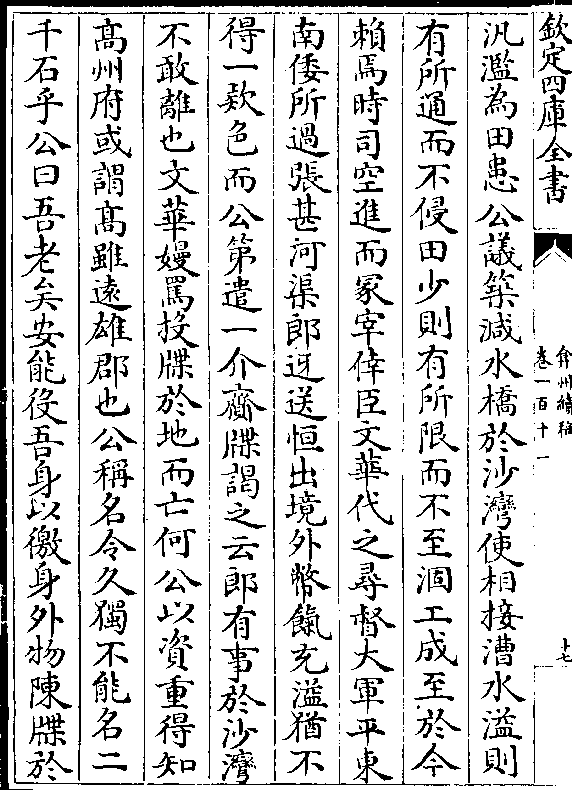 欽定四庫全書
弇州續稿
卷一百十一
十七
汎濫為田患公議築減水橋於沙灣使相接漕水溢則
有所通而不侵田少則有所限而不至涸工成至於今
賴焉時司空進而冢宰倖臣文華代之尋督大軍平東
南倭所過張甚河渠郎迓送恒出境外幣餼充溢猶不
得一欵色而公第遣一介齎牒謁之云郎有事於沙灣
不敢離也文華嫚罵投牒於地而亡何公以資重得知
髙州府或謂髙雖遠雄郡也公稱名令久獨不能名二
千石乎公曰吾老矣安能役吾身以徼身外物陳牒於